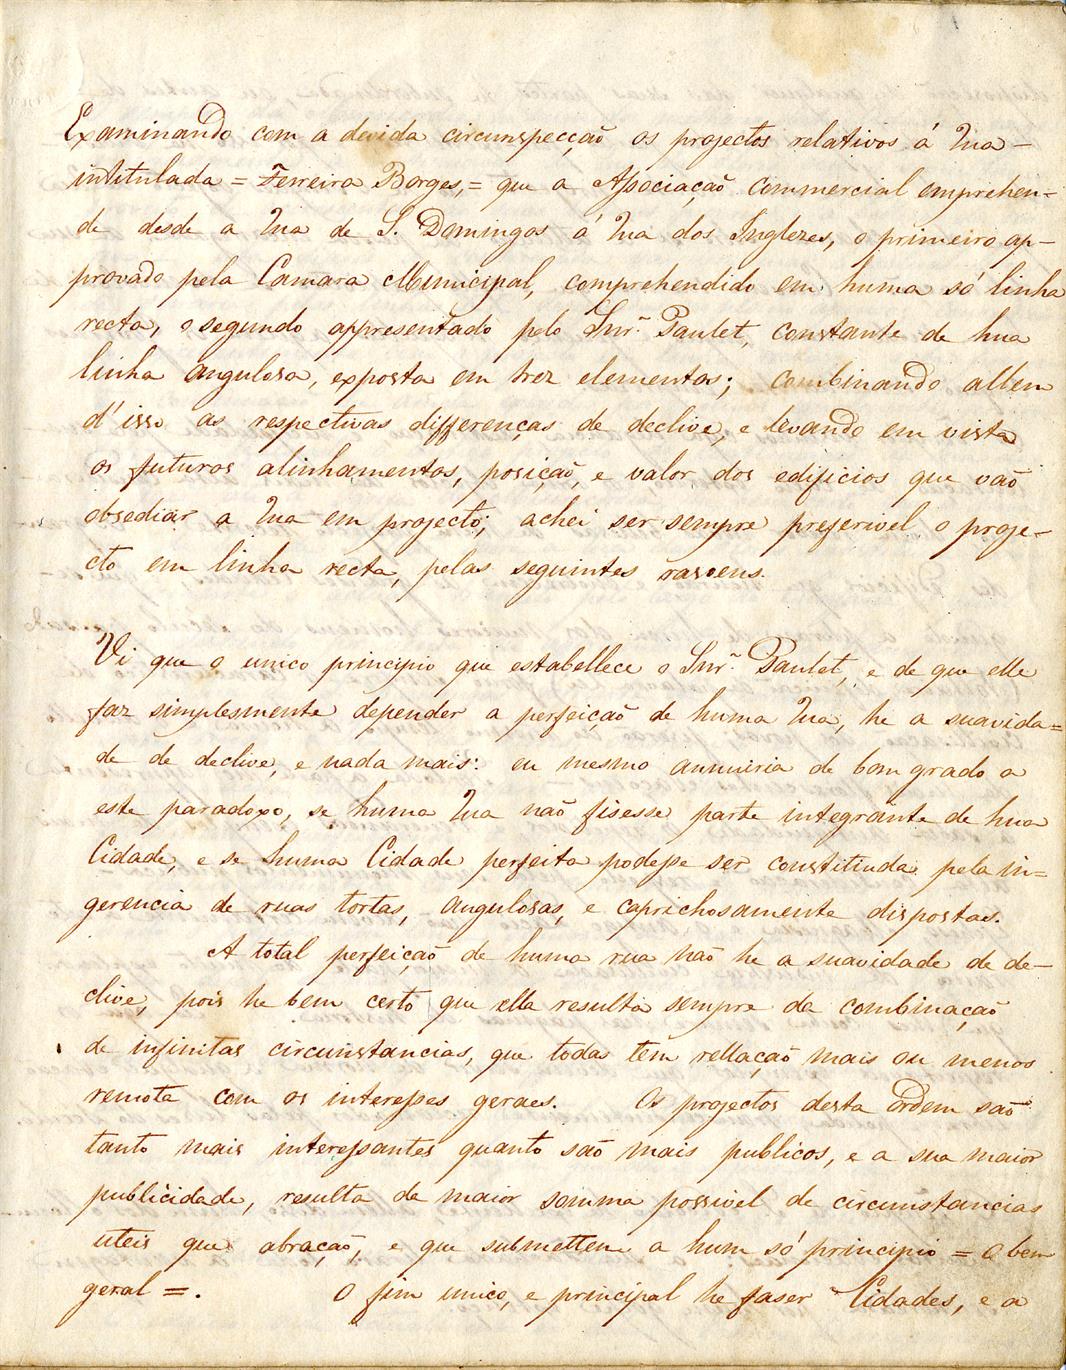 Examinando com a devida circunspecção os projectos relativos á Rua
intitulada = Ferreira Borges, = que a Associação Commercial emprehen-
de desde a Rua de S. Domingos á Rua dos Inglezes, o primeiro ap-
provado pela Camara Municipal, comprehendido em huma só linha
recta, o segundo appresentado pelo Snr. Paulet, constante de hua
linha angulosa, exposta em trez elementos; combinando allem
d'isso as respectivas differenças de declive, e levando em vista
os futuros alinhamentos, posição, e valor dos edificios que vaõ
obsediar a Rua em projecto; achei ser sempre preferivel o proje-
cto em linha recta, pelas seguintes rasoens.
Vi que o unico principio que estabellece o Snr. Paulet, e de que elle
faz simplesmente depender a perfeição de huma Rua, he a suavida=
de de declive, e nada mais: eu mesmo annuiria de bom grado a
este paradoxo, se huma Rua naõ fisesse parte integrante de hua
Cidade, e se huma Cidade perfeita podesse ser constituida pela in=
gerencia de ruas tortas, angulosas, e caprichosamente dispostas.
A total perfeição de huma rua naõ he a suavidade de de-
clive, pois he bem certo que ella resulta sempre da combinaçaõ
de infinitas circunstancias, que todas tem rellaçaõ mais ou menos
remota com os interesses geraes. Os projectos desta ordem saõ
tanto mais interessantes quanto saõ mais publicos, e a sua maior
publicidade, resulta da maior somma possivel de circunstancias
uteis que abraçaõ, e que submettem a hum só principio = o bem
geral =. O fim unico, e principal he faser Cidades, e a